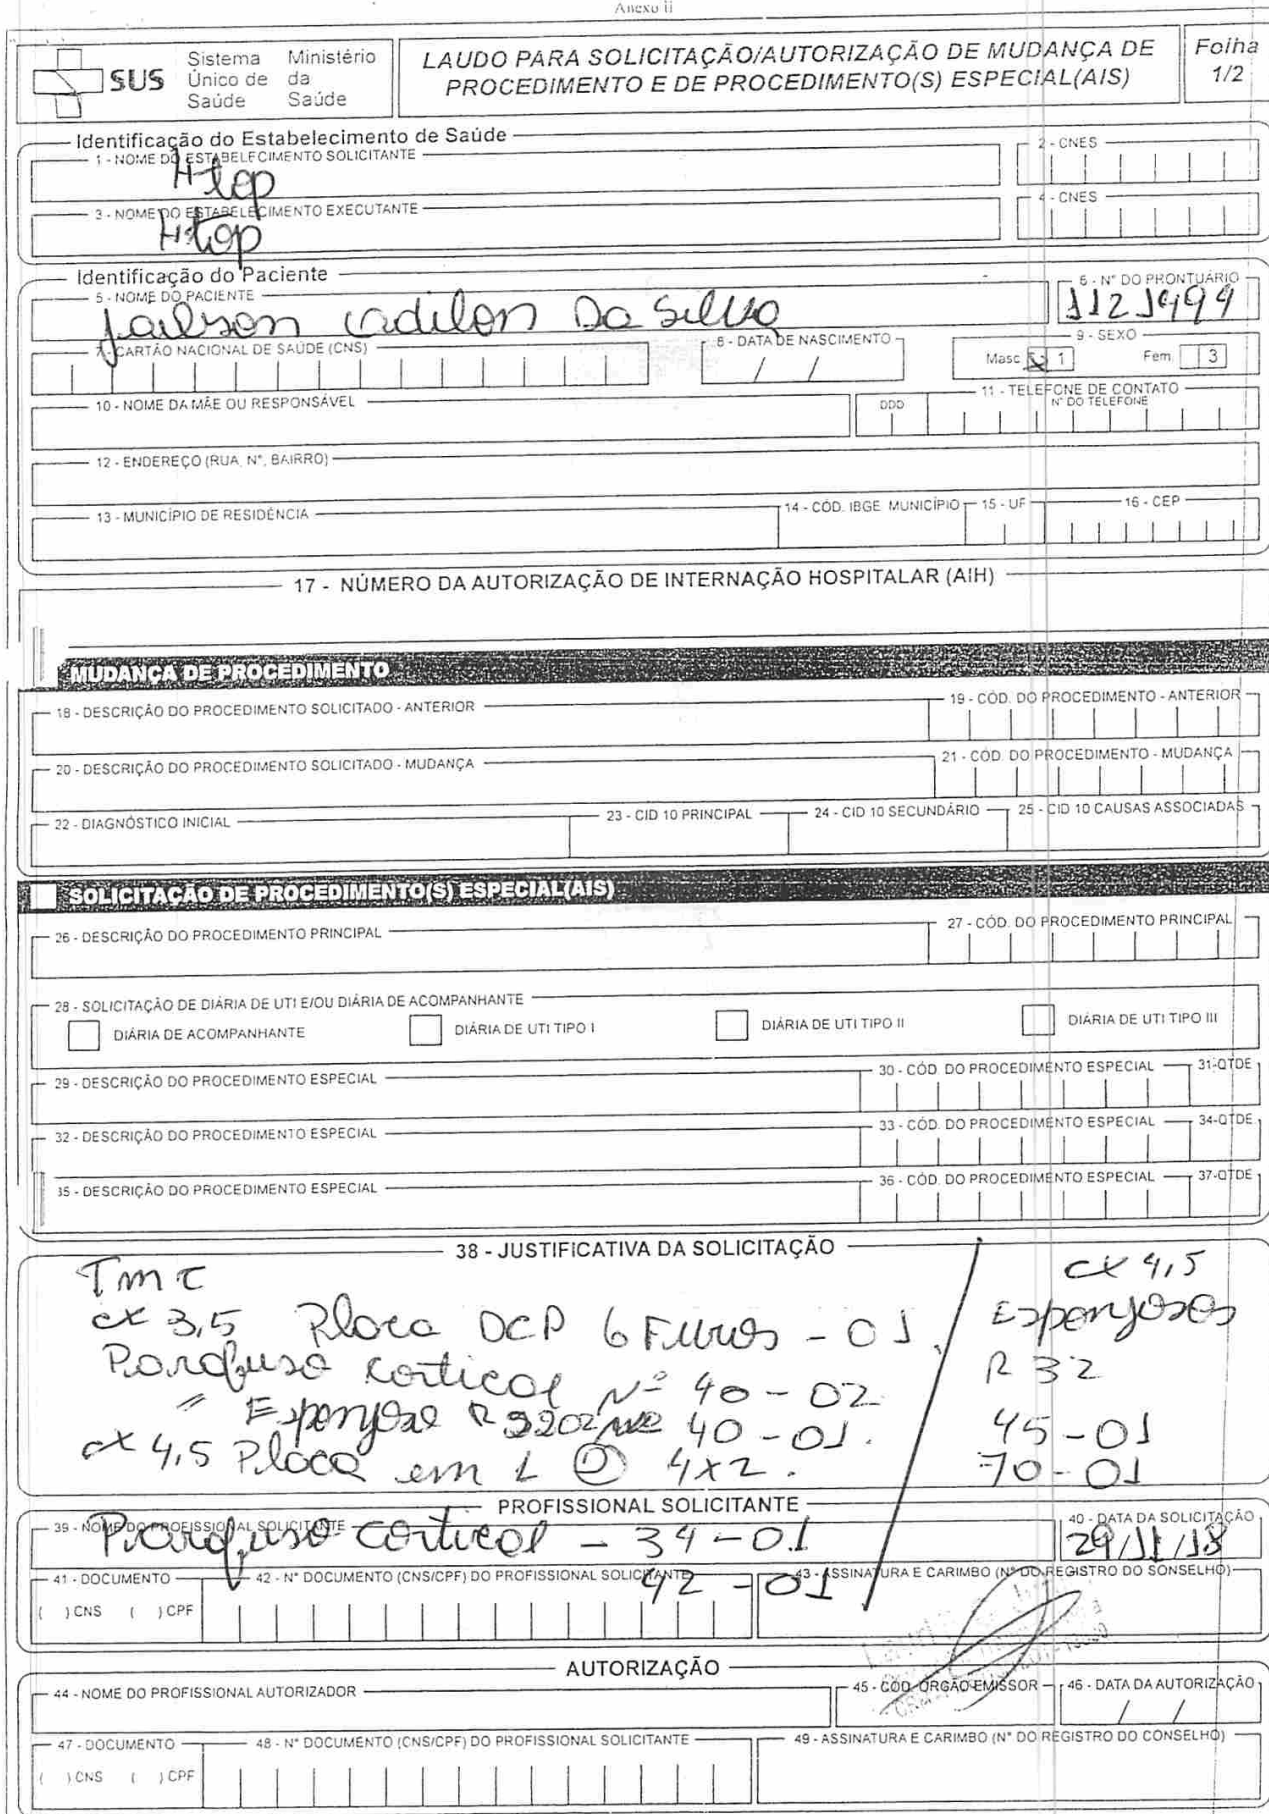 Anexo II
SUS Sistema Único de Saúde Ministério da Saúde
LAUDO PARA SOLICITAÇÃO/AUTORIZAÇÃO DE MUDANÇA DE PROCEDIMENTO E DE PROCEDIMENTO(S) ESPECIAL(AIS)
Folha 1/2
Identificação do Estabelecimento de Saúde
1 - NOME DO ESTABELECIMENTO SOLICITANTE 2 - CNES
Htop
3 - NOME DO ESTABELECIMENTO EXECUTANTE 4 - CNES
Htop
Identificação do Paciente
5 - NOME DO PACIENTE 6 - N° DO PRONTUÁRIO
Jailson Da Silva 1121499
7 - CARTÃO NACIONAL DE SAÚDE (CNS) 8 - DATA DE NASCIMENTO 9 - SEXO
/ / Masc X 1 Fem 3
10 - NOME DA MÃE OU RESPONSÁVEL 11 - TELEFONE DE CONTATO
DDD N° DO TELEFONE
12 - ENDEREÇO (RUA, N°, BAIRRO)
13 - MUNICÍPIO DE RESIDÊNCIA 14 - CÓD. IBGE MUNICÍPIO 15 - UF 16 - CEP
17 - NÚMERO DA AUTORIZAÇÃO DE INTERNAÇÃO HOSPITALAR (AIH)
MUDANÇA DE PROCEDIMENTO
18 - DESCRIÇÃO DO PROCEDIMENTO SOLICITADO - ANTERIOR 19 - CÓD. DO PROCEDIMENTO - ANTERIOR
20 - DESCRIÇÃO DO PROCEDIMENTO SOLICITADO - MUDANÇA 21 - CÓD. DO PROCEDIMENTO - MUDANÇA
22 - DIAGNÓSTICO INICIAL 23 - CID 10 PRINCIPAL 24 - CID 10 SECUNDÁRIO 25 - CID 10 CAUSAS ASSOCIADAS
SOLICITAÇÃO DE PROCEDIMENTO(S) ESPECIAL(AIS)
26 - DESCRIÇÃO DO PROCEDIMENTO PRINCIPAL 27 - CÓD. DO PROCEDIMENTO PRINCIPAL
28 - SOLICITAÇÃO DE DIÁRIA DE UTI E/OU DIÁRIA DE ACOMPANHANTE
DIÁRIA DE ACOMPANHANTE DIÁRIA DE UTI TIPO I DIÁRIA DE UTI TIPO II DIÁRIA DE UTI TIPO III
29 - DESCRIÇÃO DO PROCEDIMENTO ESPECIAL 30 - CÓD. DO PROCEDIMENTO ESPECIAL 31-QTDE
32 - DESCRIÇÃO DO PROCEDIMENTO ESPECIAL 33 - CÓD. DO PROCEDIMENTO ESPECIAL 34-QTDE
35 - DESCRIÇÃO DO PROCEDIMENTO ESPECIAL 36 - CÓD. DO PROCEDIMENTO ESPECIAL 37-QTDE
38 - JUSTIFICATIVA DA SOLICITAÇÃO
cx 4,5
cx 3,5 Placa DCP 6 Furos - 01 Esponjosos
Parafuso cortical Nº 40 - 02 R 32
" Esponjoso 40 - 01. 45 - 01
cx 4,5 Placa em L 4x2. 70 - 01
PROFISSIONAL SOLICITANTE
39 - NOME DO PROFISSIONAL SOLICITANTE 40 - DATA DA SOLICITAÇÃO
Parafuso cortical - 34 - 01 29/11/18
41 - DOCUMENTO 42 - N° DOCUMENTO (CNS/CPF) DO PROFISSIONAL SOLICITANTE 43 - ASSINATURA E CARIMBO (N° DO REGISTRO DO SONSELHO)
42 - 01
( ) CNS ( ) CPF
AUTORIZAÇÃO
44 - NOME DO PROFISSIONAL AUTORIZADOR 45 - CÓD. ÓRGÃO EMISSOR 46 - DATA DA AUTORIZAÇÃO
/ /
47 - DOCUMENTO 48 - N° DOCUMENTO (CNS/CPF) DO PROFISSIONAL SOLICITANTE 49 - ASSINATURA E CARIMBO (N° DO REGISTRO DO CONSELHO)
( ) CNS ( ) CPF